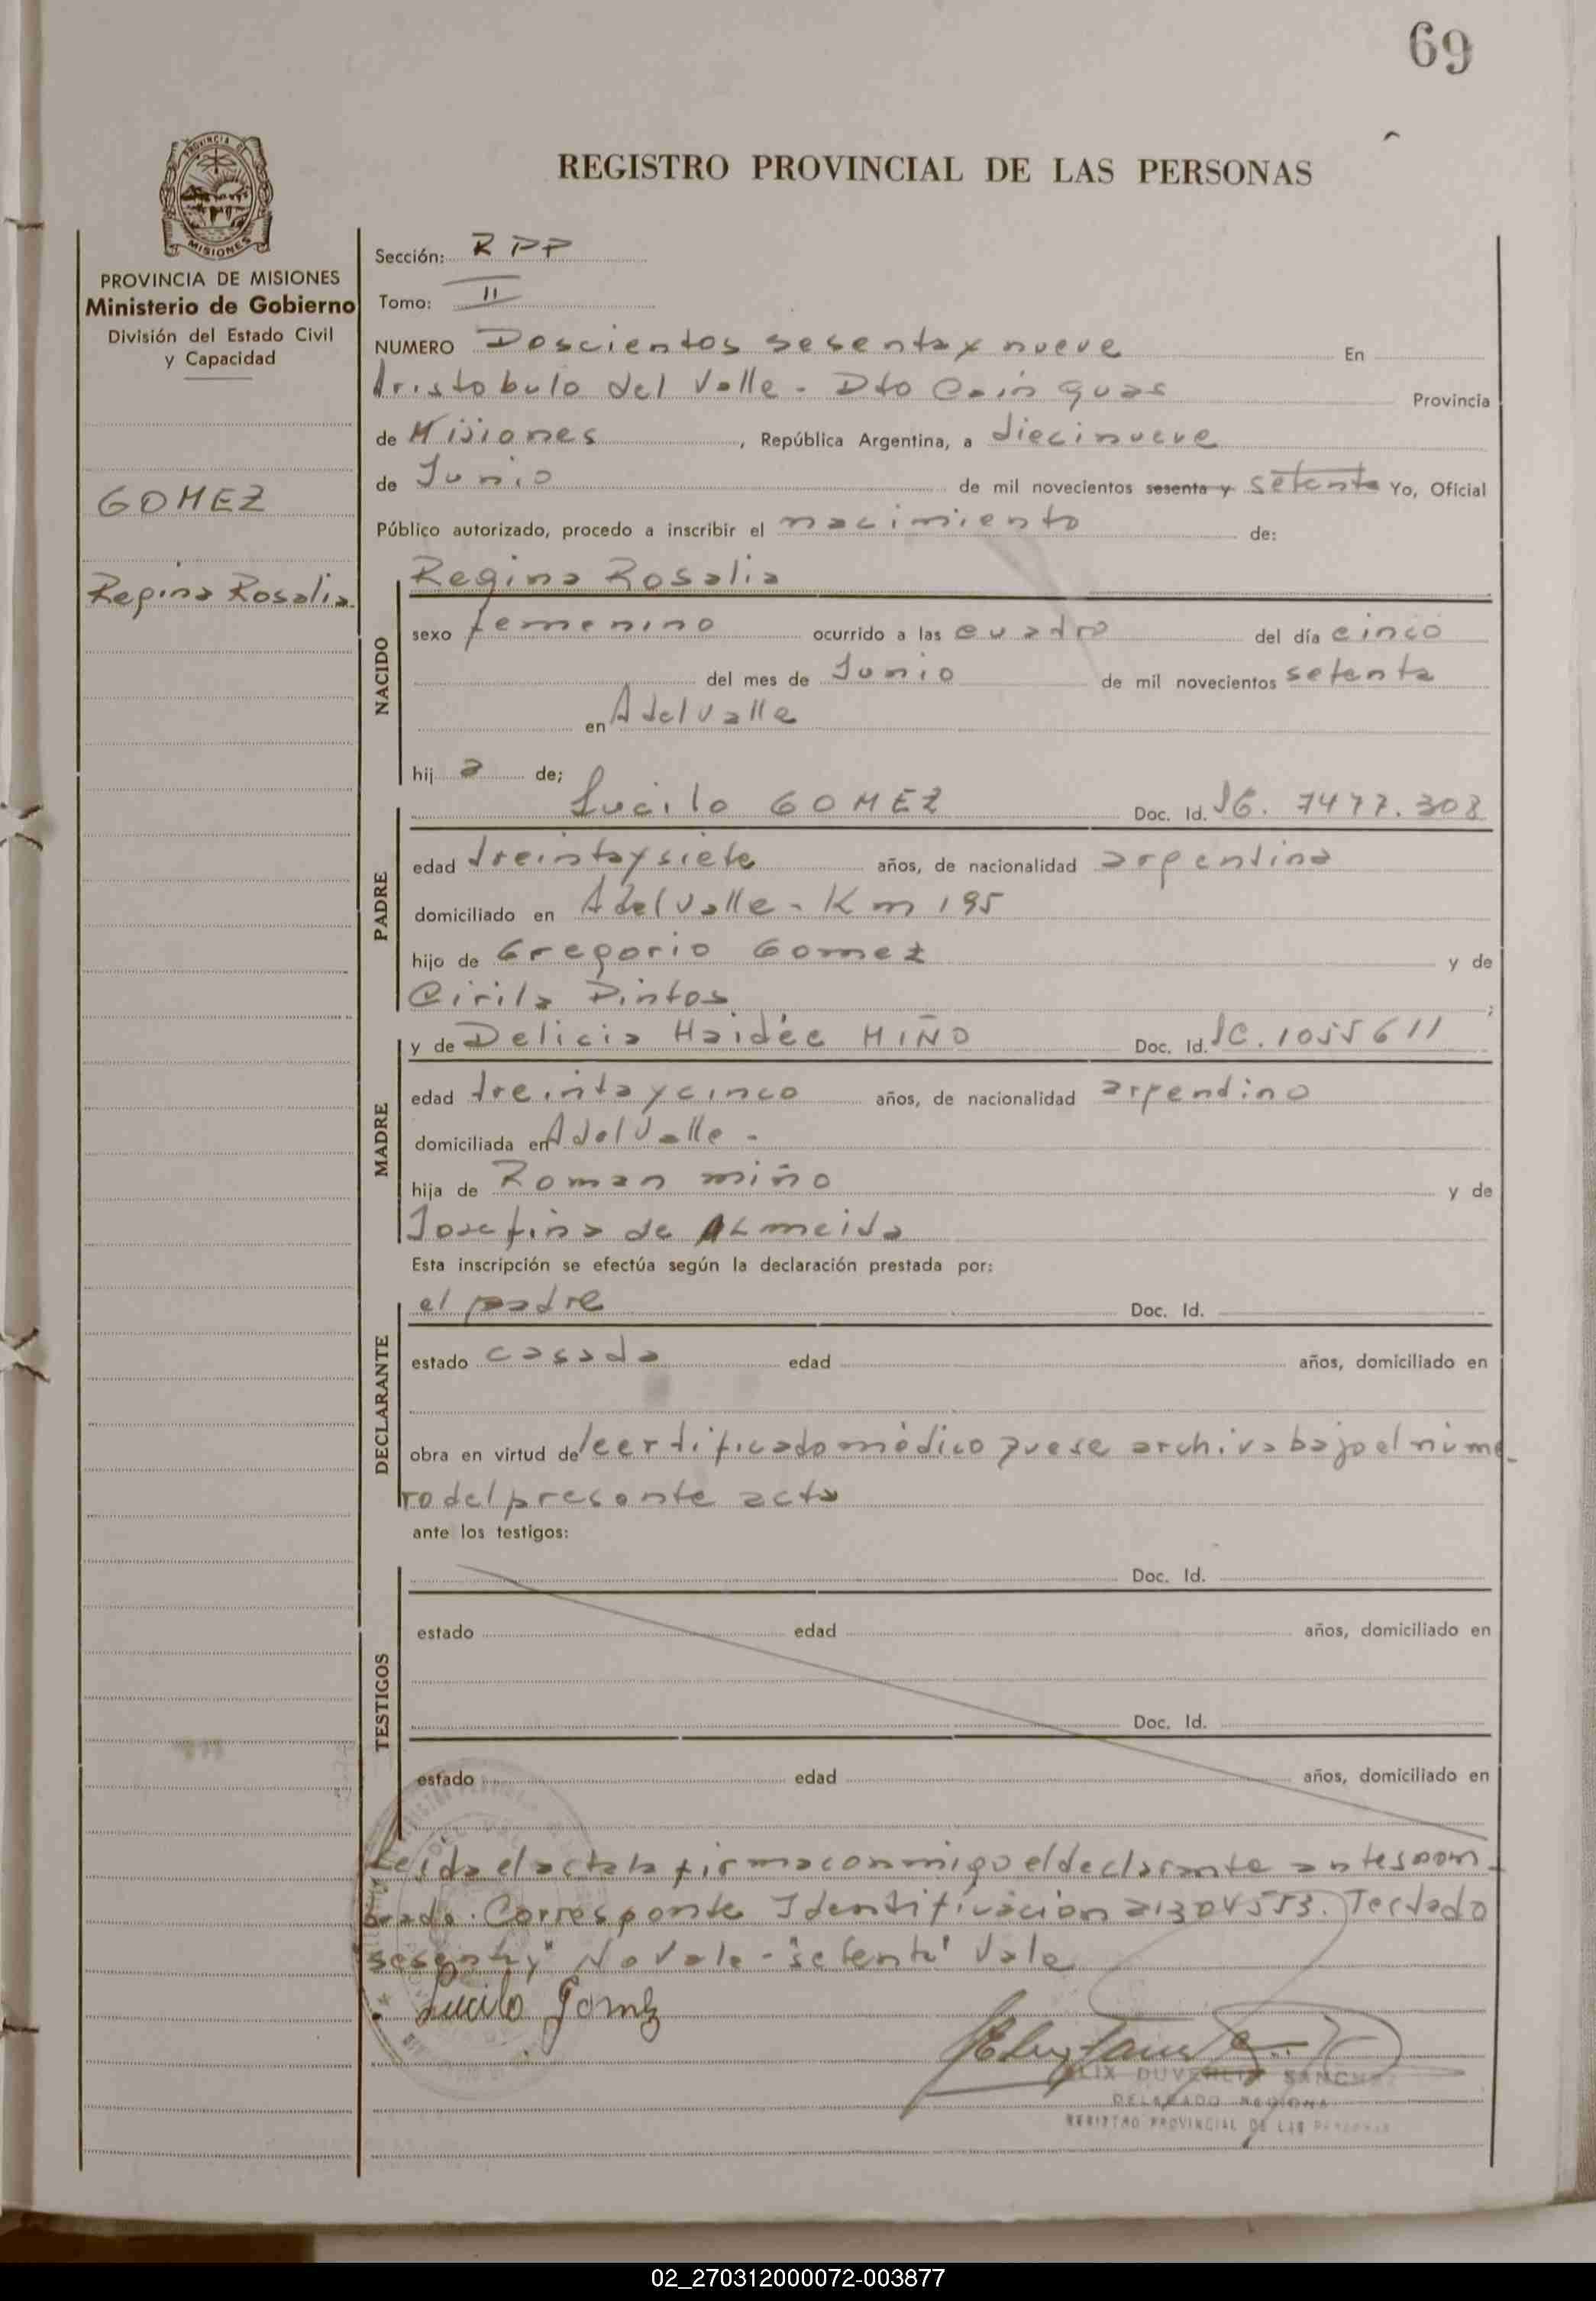 69
PROVINCIA DE
MISIONES
REGISTRO PROVINCIAL DE LAS PERSONAS
PROVINCIA DE MISIONES
Ministerio de Gobierno
División del Estado Civil
y Capacidad
GOMEZ
Regina Rosalia
Sección: RPP
Tomo: II
NUMERO Doscientos sesenta y nueve En
Aristobulo del Valle - Dto Cainguas Provincia
de Misiones, República Argentina, a diecinueve
de Junio de mil novecientos sesenta y setenta Yo, Oficial
Público autorizado, procedo a inscribir el nacimiento de:
NACIDO
Regina Rosalia
sexo femenino ocurrido a las cuadro del día cinco
del mes de Junio de mil novecientos setenta
en A del Valle
hij a de;
PADRE
Lucilo GOMEZ Doc. Id. 7477.303
edad treinta y siete años, de nacionalidad argentina
domiciliado en A del Valle - Km 195
hijo de Gregorio Gomez y de
Cirila Pintos;
MADRE
y de Delicia Haidée MIÑO Doc. Id. 1055611
edad treinta y cinco años, de nacionalidad argentino
domiciliada en A del Valle -
hija de Roman miño y de
Josefina de ALmeida
Esta inscripción se efectúa según la declaración prestada por:
DECLARANTE
el padre Doc. Id.
estado casado edad años, domiciliado en
obra en virtud del certificado médico que se archiva bajo el núme
ro del presente acta
ante los testigos:
TESTIGOS
Doc. Id.
estado edad años, domiciliado en
Doc. Id.
estado edad años, domiciliado en
Leida el acta la firma conmigo el declarante antes nom-
brado. Corresponde Identificación 21304553. Testado
"sesenta y" No Vale - "setenta" Vale
Lucilo Gomez
FELIX DUVERLIZ SANCHEZ
DELEGADO REGIONAL
REGISTRO PROVINCIAL DE LAS PERSONAS
02_270312000072-003877